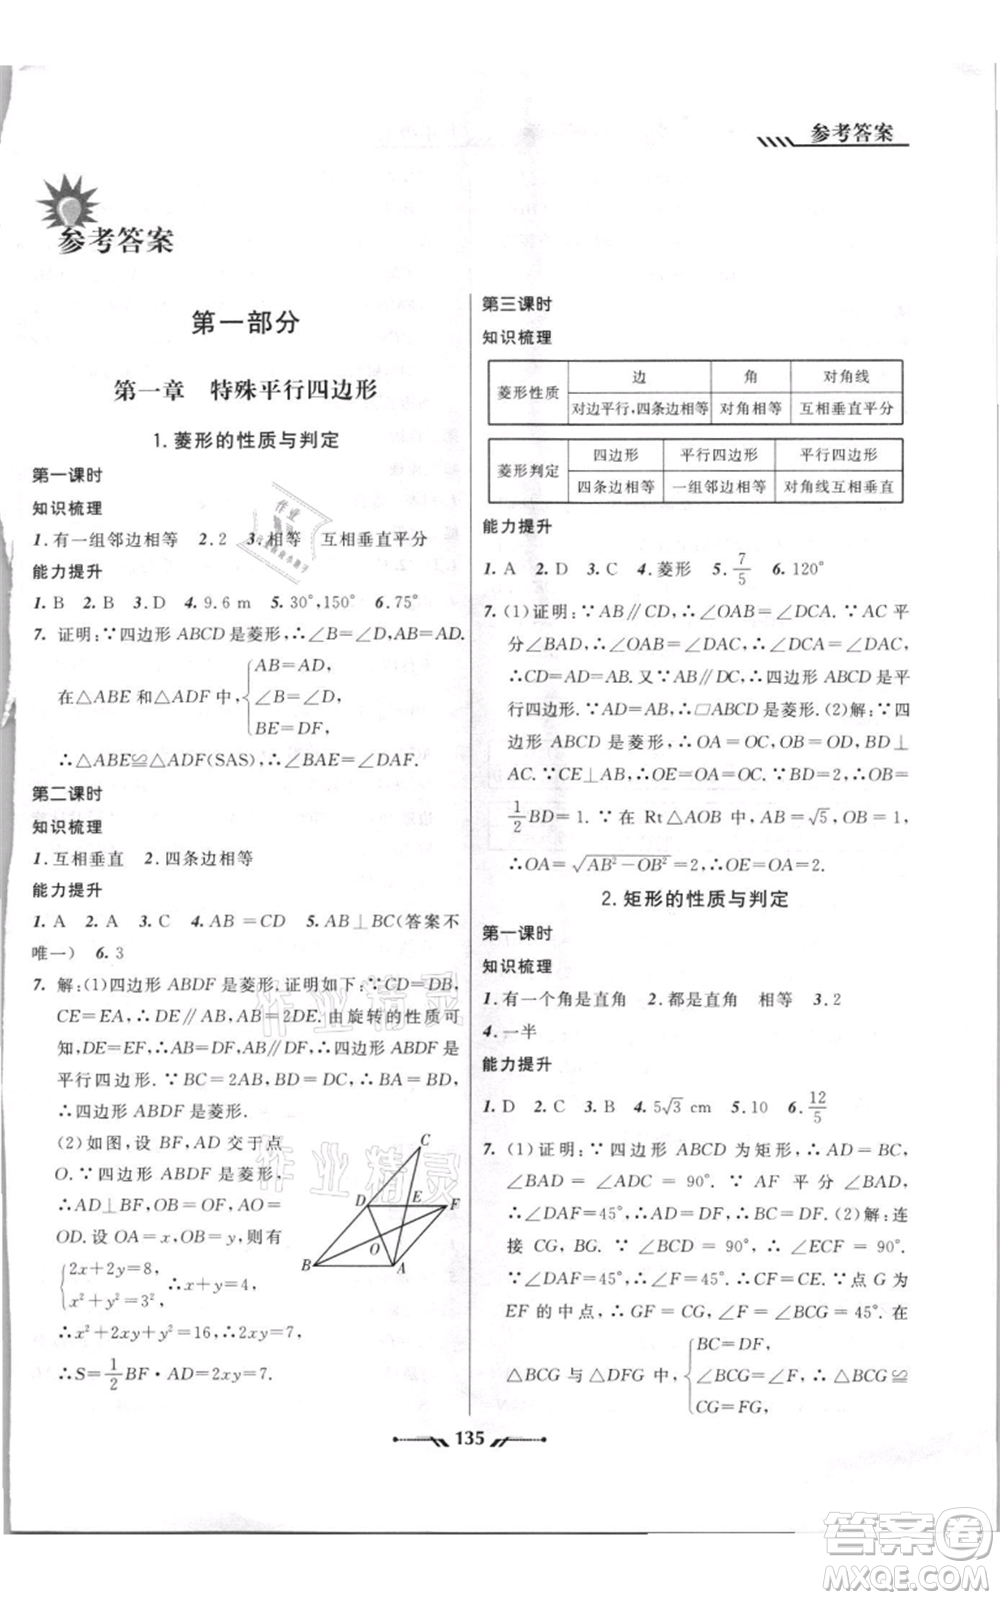 参考答案
参考答案
第一部分
第一章 特殊平行四边形
1.菱形的性质与判定
第一课时
知识梳理
1.有一组邻边相等 2.2 3.相等 互相垂直平分
能力提升
1.B 2.B 3.D 4.9.6 m 5.30°,150° 6.75°
7. 证明:∵四边形 ABCD 是菱形,∴∠B=∠D,AB=AD.
在△ABE 和△ADF 中,{AB=AD,
∠B=∠D,
BE=DF,
∴△ABE≌△ADF(SAS),∴∠BAE=∠DAF.
第二课时
知识梳理
1.互相垂直 2.四条边相等
能力提升
1.A 2.A 3.C 4.AB=CD 5.AB⊥BC(答案不
唯一) 6.3
7. 解:(1)四边形 ABDF 是菱形. 证明如下:∵CD=DB,
CE=EA,∴DE∥AB,∴AB=2DE. 由旋转的性质可
知,DE=EF,∴AB=DF,∴四边形 ABDF 是
平行四边形. ∵BC=2AB,BD=DC,∴BA=BD,
∴四边形 ABDF 是菱形.
(2)如图,设 BF,AD 交于点
O. ∵四边形 ABDF 是菱形,
∴AD⊥BF,OB=OF,AO=
OD. 设 OA=x,OB=y,则有
{2x+2y=8,
x²+y²=3², ∴x+y=4,
∴x²+2xy+y²=16,∴2xy=7,
∴S=1/2 BF·AD=2xy=7.
C
D E F
O
B A
第三课时
知识梳理
菱形性质 边 角 对角线
对边平行,四条边相等 对角相等 互相垂直平分
菱形判定 四边形 平行四边形 平行四边形
四条边相等 一组邻边相等 对角线互相垂直
能力提升
1.A 2.D 3.C 4.菱形 5.7/5 6.120°
7. (1)证明:∵AB∥CD,∴∠OAB=∠DCA. ∵AC 平
分∠BAD,∴∠OAB=∠DAC,∴∠DCA=∠DAC,
∴CD=AD=AB. 又∵AB∥DC,∴四边形 ABCD 是平
行四边形. ∵AD=AB,∴□ABCD 是菱形. (2)解:∵四
边形 ABCD 是菱形,∴OA=OC,BD⊥
AC. ∵CE⊥AB,∴OE=OA=OC,∴OB=
1/2 BD=1. ∵在 Rt△AOB 中,AB=√5,OB=1,
∴OA=√(AB²-OB²)=2,∴OE=OA=2.
2.矩形的性质与判定
第一课时
知识梳理
1.有一个角是直角 2.都是直角 相等 3.2
4.一半
能力提升
1.D 2.C 3.B 4.5√3 cm 5.10 6.12/5
7. (1)证明:∵四边形 ABCD 为矩形,∴AD=BC,
∠BAD=∠BCD=90°. ∵AF 平分∠BAD,
∴∠DAF=45°,∴AD=DF,∴BC=DF. (2)解:连
接 CG,BG. ∵∠BCD=90°,∴∠ECF=90°.
∵∠DAF=45°,∴∠F=45°,∴CE=CF. ∵点 G 为
EF 的中点,∴GF=CG,∠F=∠BCG=45°. 在
△BCG 与△DFG 中,{BC=DF,
∠BCG=∠F, ∴△BCG≌
CG=FG,
135
作业精灵
作业精灵
答案卷
MXQE.COM